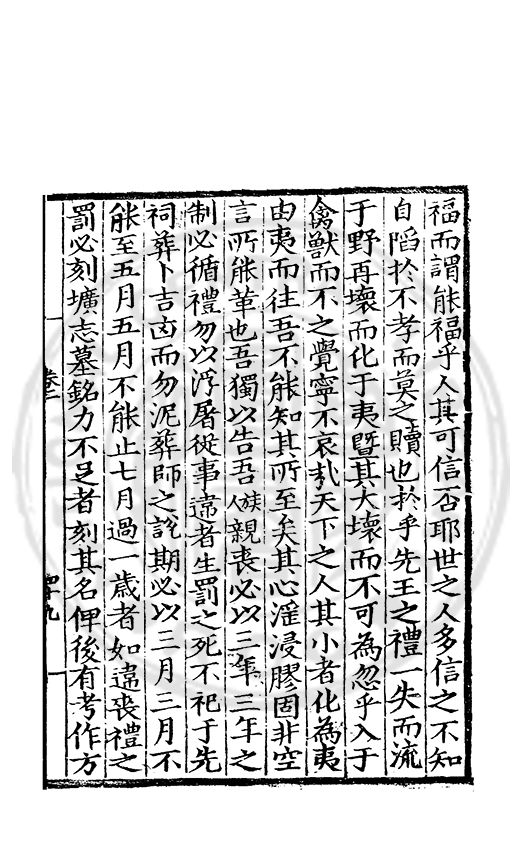 福而謂能福乎人其可信否耶世之人多信之不知
自陷於不孝而莫之贖也於乎先王之禮一失而流
于野再壞而化于夷暨其大壞而不可為忽乎入于
禽獸而不之覺寧不哀哉天下之人其小者化為夷
由夷而往吾不能知其所至矣其心淫浸膠固非空
言所能革也吾獨以告吾族人親喪必以三年三年之
制必循禮勿以浮屠從事違者生罰之死不祀于先
祠葬卜吉凶而勿泥葬師之說期必以三月三月不
能至五月五月不能止七月過一歲者如違喪禮之
罰必刻壙志墓銘力不足者刻其名俾後有考作方
卷二
四十九